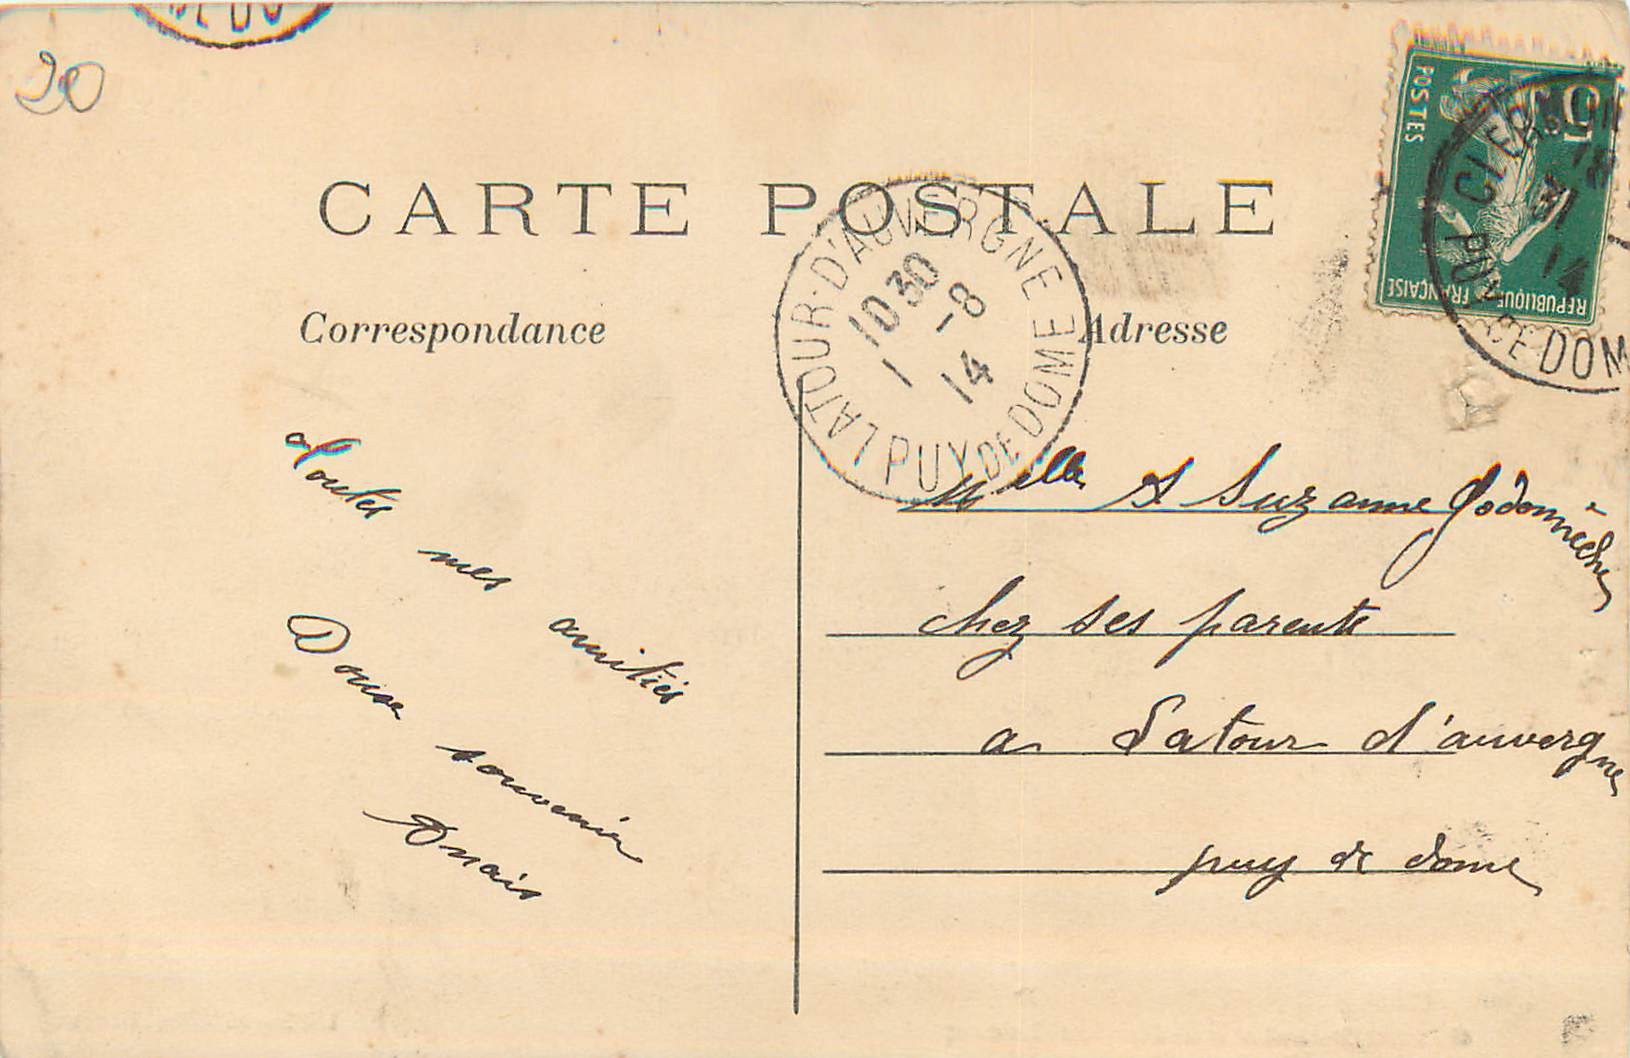 20
CARTE POSTALE
Correspondance
Adresse
LATOUR-D'AUVERGNE
PUY DE DOME
10 30
1 - 8
14
POSTES
5
REPUBLIQUE FRANÇAISE
CLERMONT
18
31
14
PUY DE DOM
Toutes
mes amitiés
Douse souvenir
Anais
Melle A Suzanne
chez ses parents
a Latour d'auvergne
puy de dome